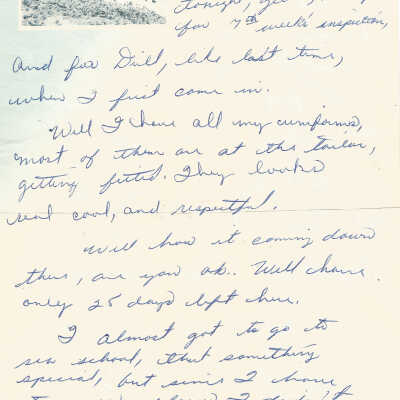 Tonight,
for 7th week's inspection,
And for Drill, like last time,
when I first come in.
Well I have all my uniforms,
most of them are at the tailor,
getting fitted. They looks
real cool, and respectful.
Well how it coming down
there, are you ok.. Well have
only 25 days left here.
I almost got to go to
sea school, that something
special, but sinis I have